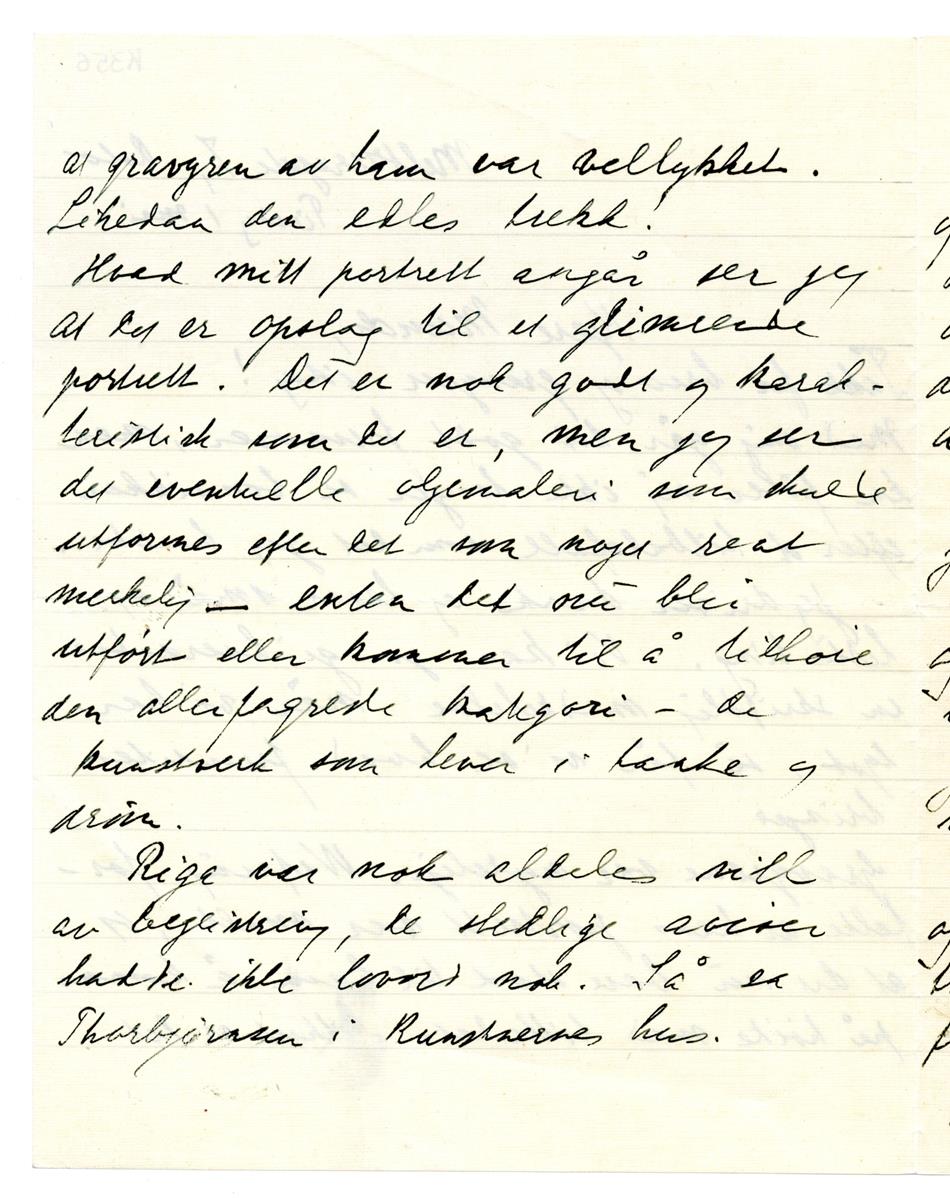 at gravyren av ham var vellykket.
Likedan den edles trekk!
Hvad mitt portrett angår ser jeg
at det er opslag til et glimrende
portrett. Det er nok godt og karak-
teristisk som det er, men jeg ser
det eventuelle oljemaleri som skulde
utformes efter det som noget reat
merkelig – enten det nu blir
utført eller kommer til å tilhøre
den allerfagreste kategori – de
kunstverk som lever i tanke og
drøm.
Riga var nok aldeles vill
av begeistring, de stedlige aviser
hadde ikke lovord nok. Så sa
Thorbjørnsen i Kunstnernes hus.